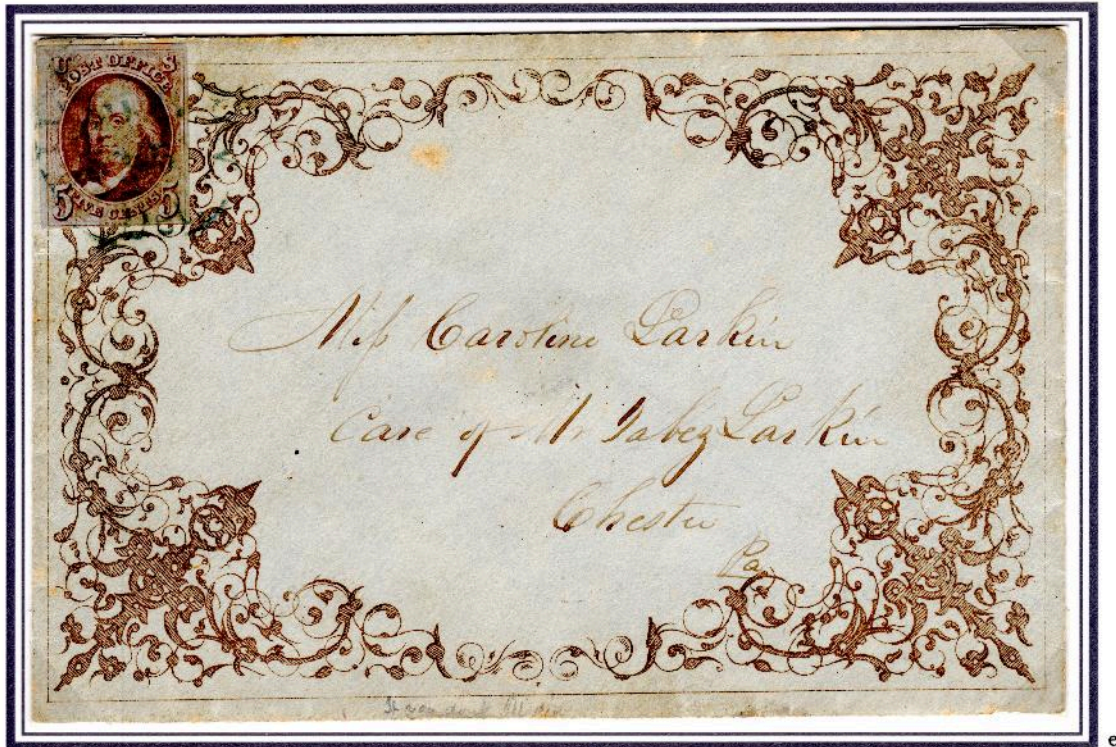 U S
POST OFFICE
5 FIVE CENTS 5
Miſs Caroline Larkin
Care of Mr Jabez Larkin
Chester
Pa
If you don't
e